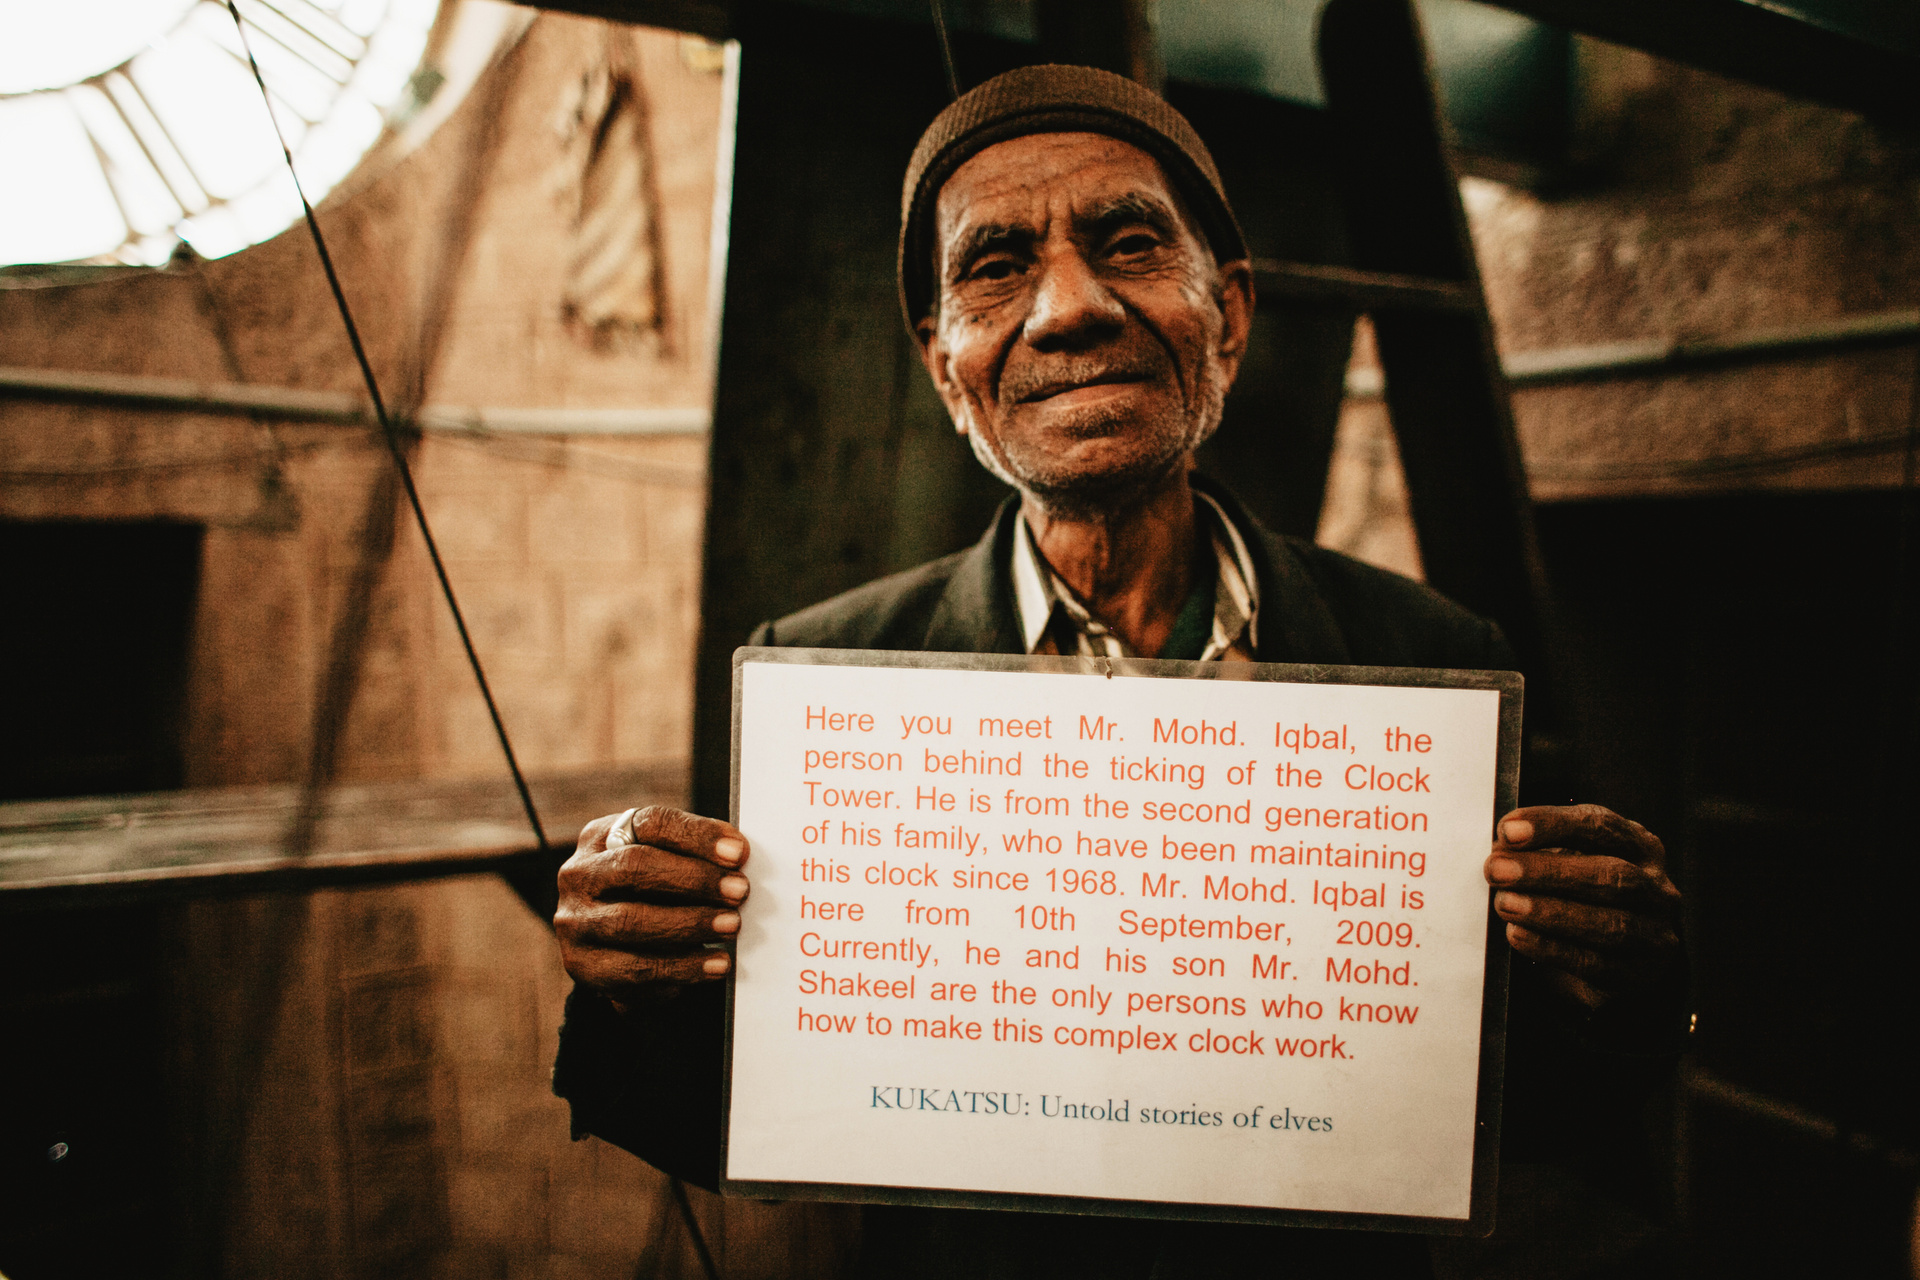 Here you meet Mr. Mohd. Iqbal, the
person behind the ticking of the Clock
Tower. He is from the second generation
of his family, who have been maintaining
this clock since 1968. Mr. Mohd. Iqbal is
here from 10th September, 2009.
Currently, he and his son Mr. Mohd.
Shakeel are the only persons who know
how to make this complex clock work.
KUKATSU: Untold stories of elves